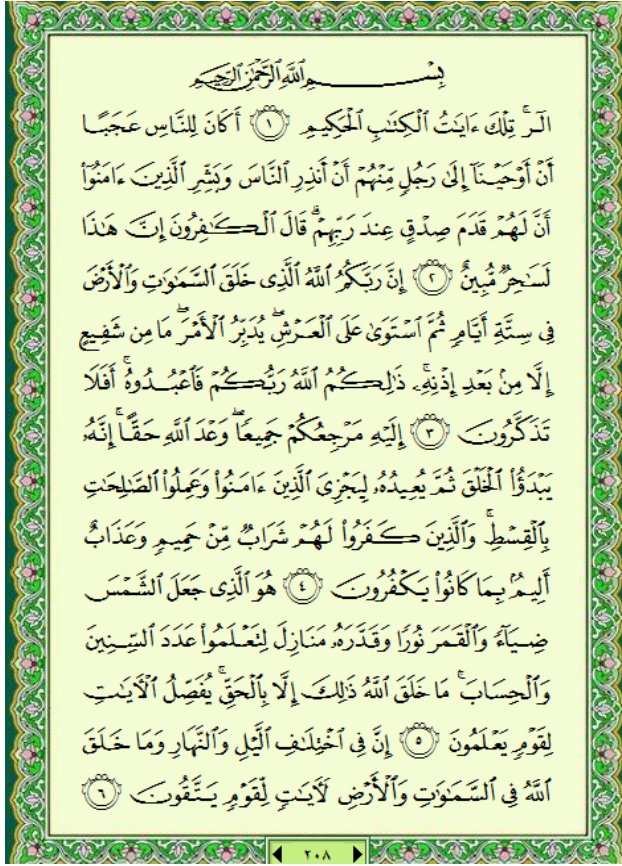 بِسْمِ ٱللَّهِ ٱلرَّحْمَٰنِ ٱلرَّحِيمِ
الٓرۚ تِلْكَ ءَايَٰتُ ٱلْكِتَٰبِ ٱلْحَكِيمِ ١ أَكَانَ لِلنَّاسِ عَجَبًا
أَنْ أَوْحَيْنَآ إِلَىٰ رَجُلٍ مِّنْهُمْ أَنْ أَنذِرِ ٱلنَّاسَ وَبَشِّرِ ٱلَّذِينَ ءَامَنُوٓا۟
أَنَّ لَهُمْ قَدَمَ صِدْقٍ عِندَ رَبِّهِمْۗ قَالَ ٱلْكَٰفِرُونَ إِنَّ هَٰذَا
لَسَٰحِرٌ مُّبِينٌ ٢ إِنَّ رَبَّكُمُ ٱللَّهُ ٱلَّذِى خَلَقَ ٱلسَّمَٰوَٰتِ وَٱلْأَرْضَ
فِى سِتَّةِ أَيَّامٍ ثُمَّ ٱسْتَوَىٰ عَلَى ٱلْعَرْشِۖ يُدَبِّرُ ٱلْأَمْرَۖ مَا مِن شَفِيعٍ
إِلَّا مِنۢ بَعْدِ إِذْنِهِۦۚ ذَٰلِكُمُ ٱللَّهُ رَبُّكُمْ فَٱعْبُدُوهُۚ أَفَلَا
تَذَكَّرُونَ ٣ إِلَيْهِ مَرْجِعُكُمْ جَمِيعًاۖ وَعْدَ ٱللَّهِ حَقًّاۚ إِنَّهُۥ
يَبْدَؤُا۟ ٱلْخَلْقَ ثُمَّ يُعِيدُهُۥ لِيَجْزِىَ ٱلَّذِينَ ءَامَنُوا۟ وَعَمِلُوا۟ ٱلصَّٰلِحَٰتِ
بِٱلْقِسْطِۚ وَٱلَّذِينَ كَفَرُوا۟ لَهُمْ شَرَابٌ مِّنْ حَمِيمٍ وَعَذَابٌ
أَلِيمٌۢ بِمَا كَانُوا۟ يَكْفُرُونَ ٤ هُوَ ٱلَّذِى جَعَلَ ٱلشَّمْسَ
ضِيَآءً وَٱلْقَمَرَ نُورًا وَقَدَّرَهُۥ مَنَازِلَ لِتَعْلَمُوا۟ عَدَدَ ٱلسِّنِينَ
وَٱلْحِسَابَۚ مَا خَلَقَ ٱللَّهُ ذَٰلِكَ إِلَّا بِٱلْحَقِّۚ يُفَصِّلُ ٱلْءَايَٰتِ
لِقَوْمٍ يَعْلَمُونَ ٥ إِنَّ فِى ٱخْتِلَٰفِ ٱلَّيْلِ وَٱلنَّهَارِ وَمَا خَلَقَ
ٱللَّهُ فِى ٱلسَّمَٰوَٰتِ وَٱلْأَرْضِ لَءَايَٰتٍ لِّقَوْمٍ يَتَّقُونَ ٦
٢٠٨